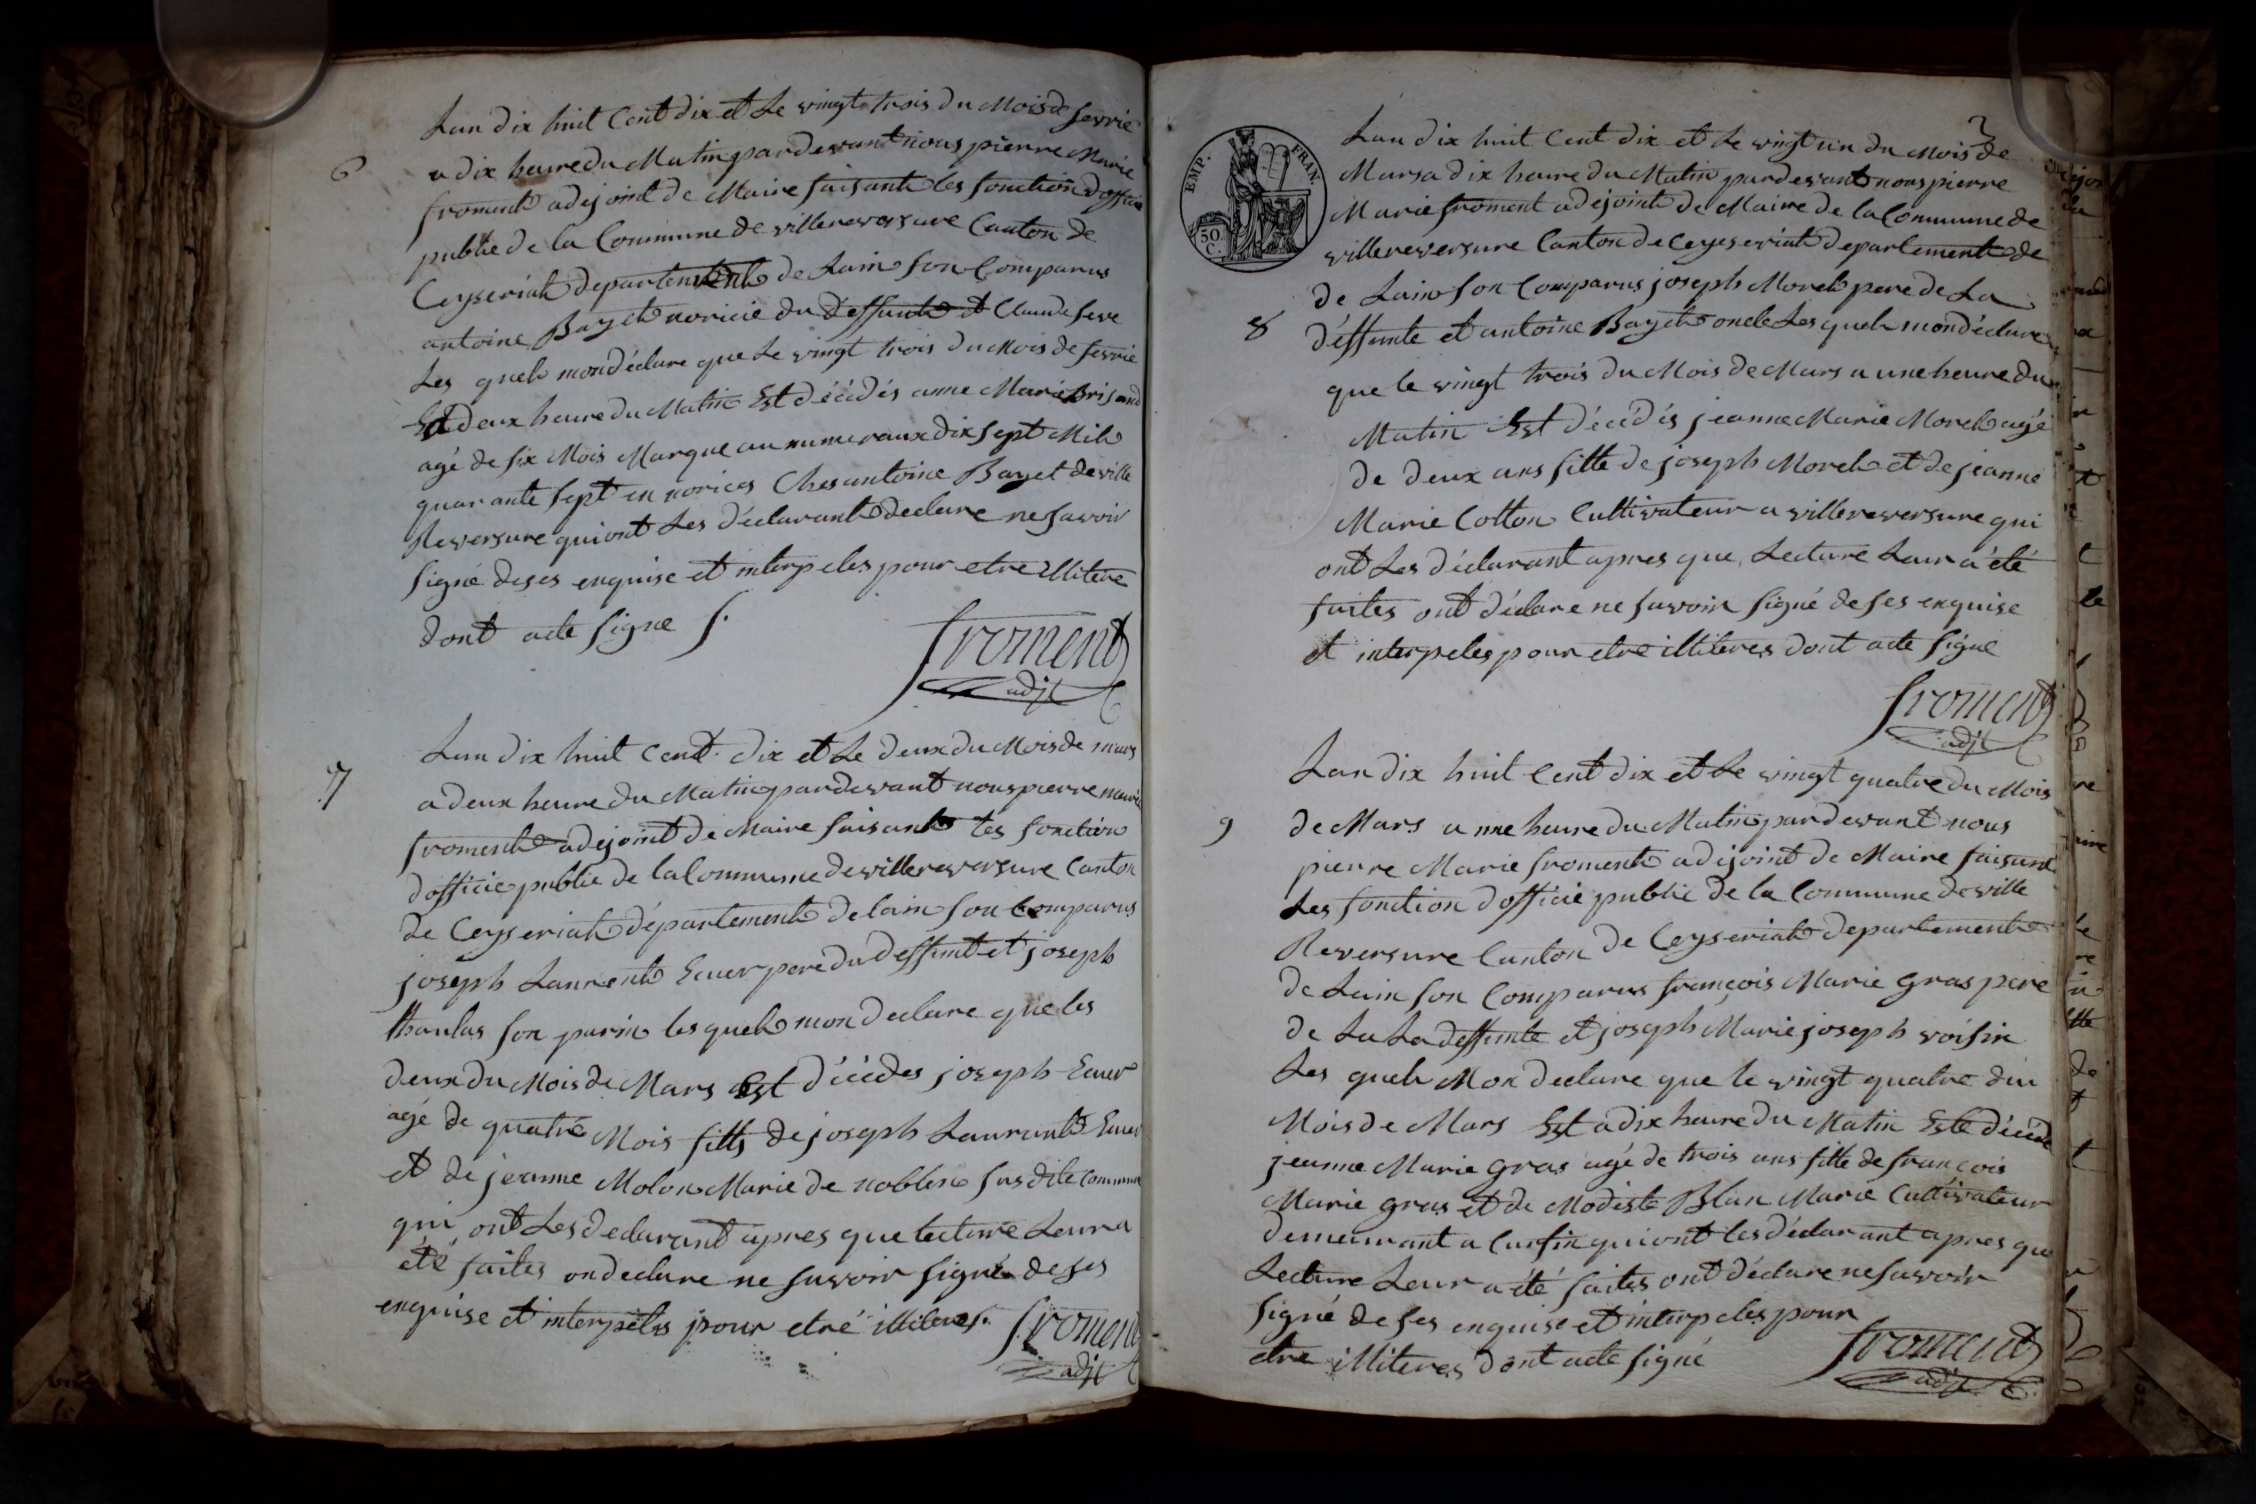 6
Lan dix huit Cent dix et Le vingt trois du Mois de fevrie
a dix heure du Matin pardevant nous pierre Marie
froment adejoint de Maire faisant les fonction dofficie
publie de la Commune de villereversure Canton de
Ceyseriat departement de Lain son Comparus
antoine Bayet noricié du deffunt et Claude seve
Les quels mon déclare que Le vingt trois du Mois de fevrie
Et deux heure du Matin Est décédés anne Marie
agé de six Mois Marque au numeraux dix sept Mil
quarante sept en norices Ches antoine Bayet de ville
Reversure qui ont Les déclarant declare ne savoir
signé deses enquise et interpeles pour etre illitere
dont acte signe
froment
adjt
7
Lan dix huit Cent dix et Le deux du Mois de mars
a deux heure du Matin pardevant nous pierre marie
froment adejoint de Maire faisant les fonction
dofficie publie de la Commune de villereversure Canton
de Ceyseriat département de lain son Comparus
joseph Laurent Ecuer pere du deffunt et joseph
thoulas son parin les quels mon declare que les
deux du Mois de Mars Est décédes joseph Ecuer
agé de quatre Mois fills de joseph Laurent Ecuer
et de jeanne Molon Marie de noblens susdite Commune
qui ont Les declarant apres que lecture Leur a
été faites on declare ne savoir signé de ses
enquise et interpeles pour etré illiteres.
froment
adjt
EMP. FRAN.
50 C.
3
Lan dix huit Cent dix et Le vingt un du Mois de
Mars a dix heure du Matin pardevant nous pierre
Marie froment adejoint de Maire de la Commune de
villereversure Canton de Ceyeseriat departement de
de Lain son Comparus joseph Morel pere de La
8
déffunte et antoine Bayet oncle Les quels mon déclare
que le vingt trois du Mois de Mars a une heure du
Matin Est décédés jeanne Marie Morel agé
de deux ans fille de joseph Morel et de jeanne
Marie Cotton Cultivateur a villereversure qui
ont Les déclarant apres que Lecture Leur a été
faites ont déclare ne savoir signé de ses enquise
et interpeles pour etre illiteres dont acte signe
froment
adjt
Lan dix huit Cent dix et Le vingt quatre du Mois
9
de Mars a une heure du Matin pardevant nous
pierre Marie froment adejoint de Maire faisant
Les fonction dofficié public de la Commune de ville
Reversure Canton de Ceyseriat departement
de Lain son Comparus françois Marie Gras pere
de La La deffunte et joseph Marie joseph voisin
Les quels Mon declare que le vingt quatre du
Mois de Mars Est a dix heure du Matin Este décédé
jeanne Marie Gras agé de trois ans fille de françois
Marie gras et de Modeste Blan Marie Cultivateur
demeurant a Cusfin qui ont les déclarant apres que
Lecture Leur a été faites ont déclare ne savoir
signé de ses enquise et interpeles pour
etre illiteres dont acte signé
froment
adjt